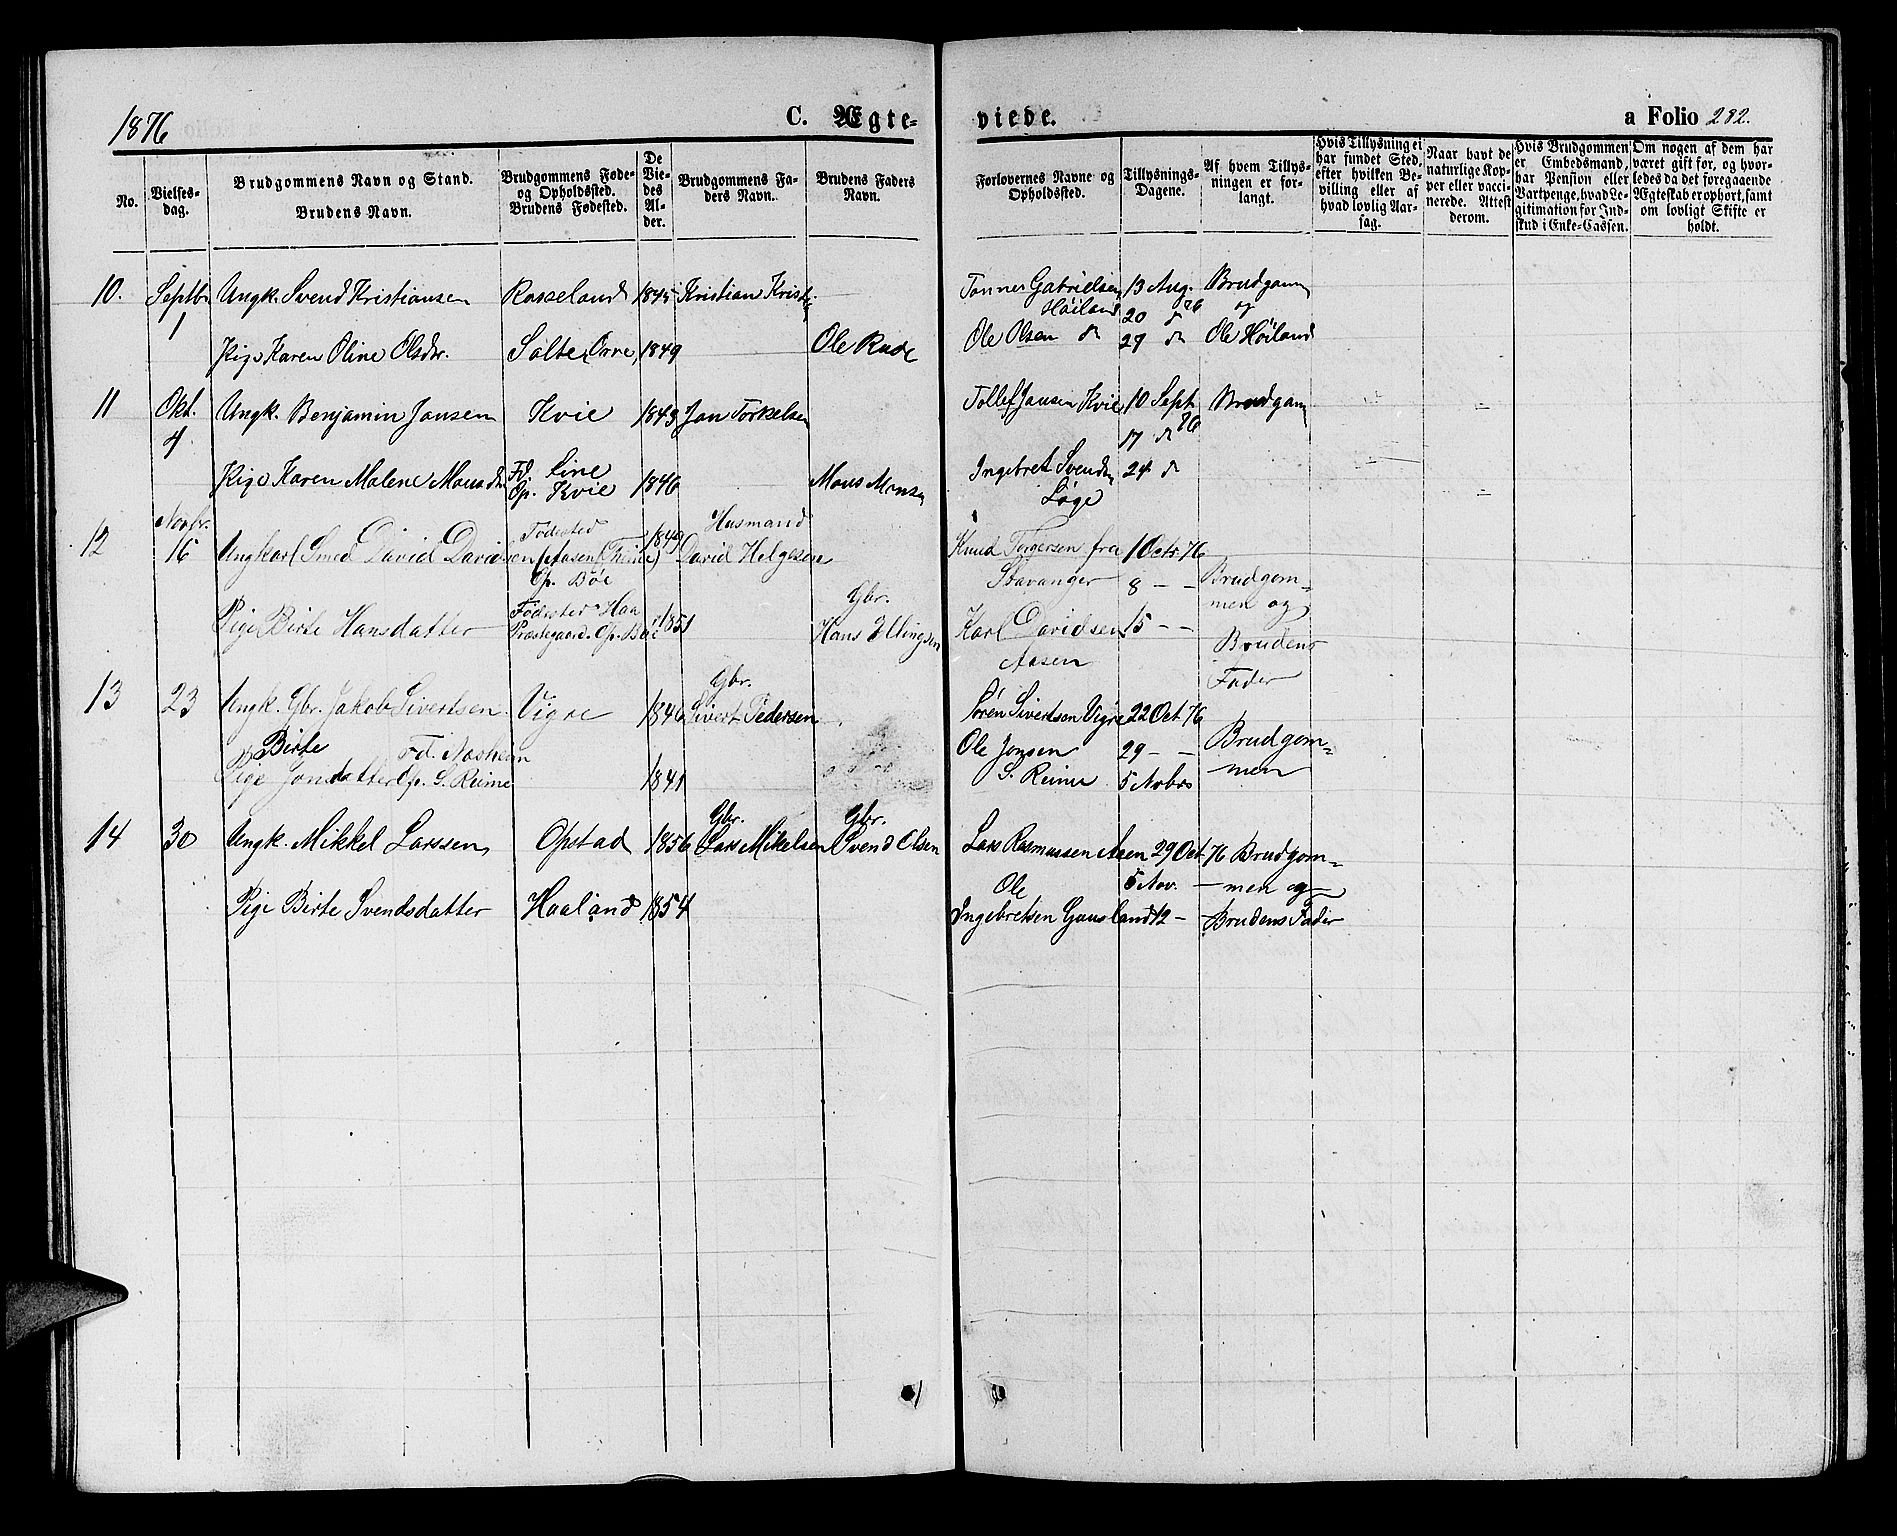 1876
C. Ægte-
viede.
a Folio 282.
No.
Vielses-
dag.
Brudgommens Navn og Stand.
Brudens Navn.
Brudgommens Føde-
og Opholdssted.
Brudens Fødested.
De
Vie-
des
Al-
der.
Brudgommens Fa-
ders Navn.
Brudens Faders
Navn.
Forlovernes Navne og
Opholdssted.
Tillysnings-
Dagene.
Af hvem Tillys-
ningen er for-
langt.
Hvis Tillysning ei
har fundet Sted,
efter hvilken Be-
villing eller af
hvad lovlig Aar-
sag.
Naar havt de
naturlige Kop-
per eller vacci-
nerede. Attest
derom.
Hvis Brudgommen
er Embedsmand,
har Pension eller
Vartpenge, hvad Le-
gitimation for Ind-
skud i Enke-Cassen.
Om nogen af dem har
været gift før, og hvor-
ledes da det foregaaende
Ægteskab er ophørt, samt
om lovligt Skifte er
holdt.
10. Septbr Ungk. Svend Kristiansen Rosseland 1845 Kristian Krist. Tønnes Gabrielsen 13 Aug. Brudgom
1 Høiland 20 d 76 og
Pige Karen Oline Olsdr. Salte, Orre, 1849 Ole Rude Ole Olsen d 27 d Ole Høiland
11 Okt. Ungk. Benjamin Jansen Kvie 1843 Jan Torkelsen Tollef Jansen Kvie 10 Sept Brudgom
4 17 d 76
Pige Karen Malene Monsdr Fd. Line 1846 Mons Monsen Ingebret Svends. 24 d
Op. Kvie Løge
12 Novbr. Fødested 1849 Husmand
16 Ungkarl Smed David Davidsen (Aasen (Thime) David Helgesen Knud Torgersen fra 1 Octr 76
Op. Bøe Stavanger 8 — — Brudgom-
men og
Pige Birte Hansdatter Fødested Haa 1851 Gbr. Karl Davidsen 15 — — Brudens
Præstegaard. Op. Bøe Hans Ellingsen Aasen Fader
13 23 Ungk. Gbr. Jakob Sivertsen Vigre 1846 Gbr. Sivert Pedersen Søren Sivertsen Vigre 22 Oct 76
Birte Fd. Aasheim Ole Jonsen 29 — — Brudgom-
Pige Jonsdatter Op. S. Reime 1841 S. Reime 5 Novbr men
14 30 Ungk. Mikkel Larssen Opstad 1856 Gbr. Lars Mikelsen Gbr. Svend Olsen Lars Rasmussen Aasen 29 Oct 76 Brudgom-
Ole 5 Nov. — men og
Pige Birte Svendsdatter Haaland 1854 Ingebretsen Gausland 12 — Brudens Fader